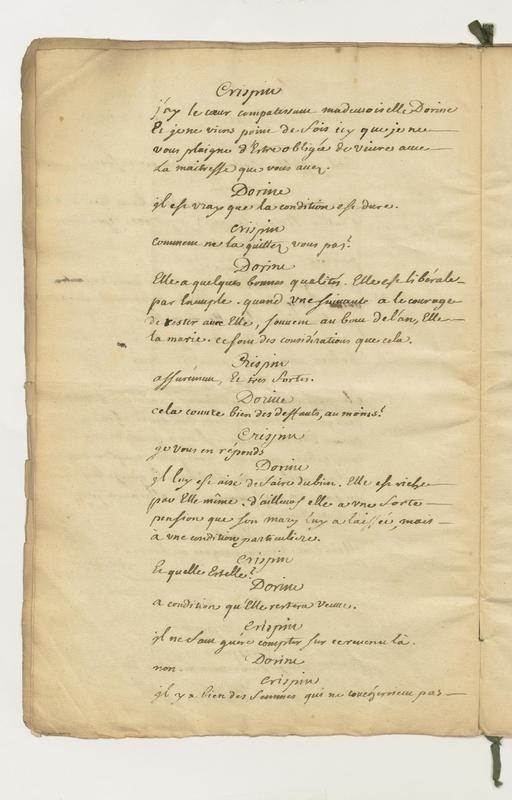 Crispin
j'ay le cœur compatissant mademoiselle Dorine
Et je ne viens point de fois icy que je ne
vous plaigne d'Estre obligée de vivre avec
La maitresse que vous avez.
Dorine
il est vray que la condition est dure.
Crispin
comment ne la quittez vous pas?
Dorine
Elle a quelques bonnes qualités. Elle est libérale
par Exemple. quand une suivante a le courage
de rester avec Elle, souvent au bout de l'an, Elle
la marie. ce sont des considérations que cela.
Crispin
assurément, Et tres fortes.
Dorine
cela couvre bien des deffauts, au moins?
Crispin
je vous en réponds
Dorine
il luy est aisé de faire du bien. Elle est riche
par Elle même. d'ailleurs elle a une forte
pension que son mary luy a laissée, mais
à une condition particuliere.
Crispin
Et quelle Est elle?
Dorine
a condition qu'Elle restera veuve.
Crispin
il ne faut guére compter sur ce revenu là.
Dorine
non.
Crispin
il y a bien des femmes qui ne pas